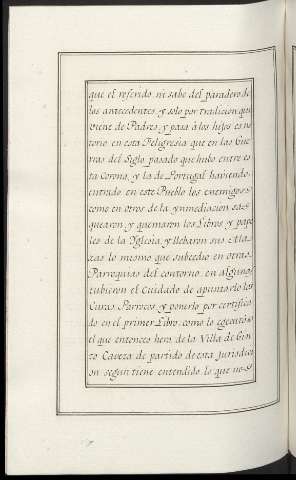 que el referido ni sabe del paradero de
los antecedentes y solo por tradicion que
viene de Padres, y pasa á los hijos es no
torio en esta Feligresia que en las Gue
rras del Siglo pasado que hubo entre es
ta Corona, y la de Portugal haviendo
entrado en este Pueblo los enemigos
como en otros de la ynmediacion saq
quearon y quemaron los Libros y pape
les de la Yglesia, y llebaron sus Alha
xas lo mismo que subcedio en otras
Parroquias del contorno en algunas
tubieron el Cuidado de apuntarlo los
Curas Parrocos y ponerlo por certifica
do en el primer Libro como lo egecutó
el que entonces hera de la Villa de
to Caveza de partido de esta Jurisdicci
on segun tiene entendido lo que